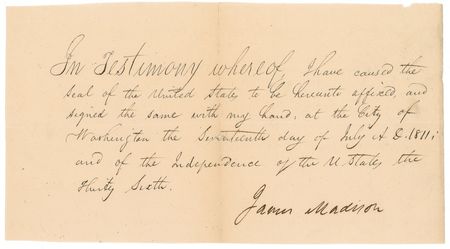 In Testimony whereof, I have caused the
seal of the United States to be hereunto affixed, and
signed the same with my hand, at the City of
Washington the Seventeenth day of July A. D. 1811;
and of the Independence of the U. States the
thirty Sixth.
James Madison